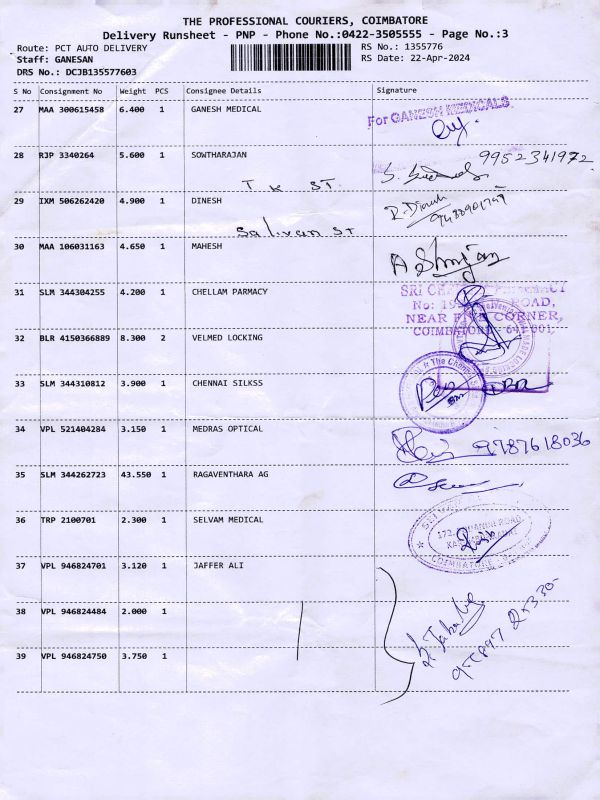 THE PROFESSIONAL COURIERS, COIMBATORE
Delivery Runsheet - PNP - Phone No.:0422-3505555 - Page No.:3
Route: PCT AUTO DELIVERY
RS No.: 1355776
Staff: GANESAN
RS Date: 22-Apr-2024
DRS No.: DCJB135577603
S No Consignment No Weight PCS Consignee Details Signature
27 MAA 300615458 6.400 1 GANESH MEDICAL
For GANESH MEDICALS
28 RJP 3340264 5.600 1 SOWTHARAJAN
9952341972
T K ST
29 IXM 506262420 4.900 1 DINESH
R. Dinesh
Salivan ST
30 MAA 106031163 4.650 1 MAHESH
31 SLM 344304255 4.200 1 CHELLAM PARMACY
SRI
ROAD,
NEAR FIVE CORNER,
COIMBATORE - 641 001
32 BLR 4150366889 8.300 2 VELMED LOCKING
33 SLM 344310812 3.900 1 CHENNAI SILKSS
34 VPL 521404284 3.150 1 MEDRAS OPTICAL
9787618036
35 SLM 344262723 43.550 1 RAGAVENTHARA AG
36 TRP 2100701 2.300 1 SELVAM MEDICAL
ROAD
COIMBATORE
37 VPL 946824701 3.120 1 JAFFER ALI
38 VPL 946824484 2.000 1
39 VPL 946824750 3.750 1